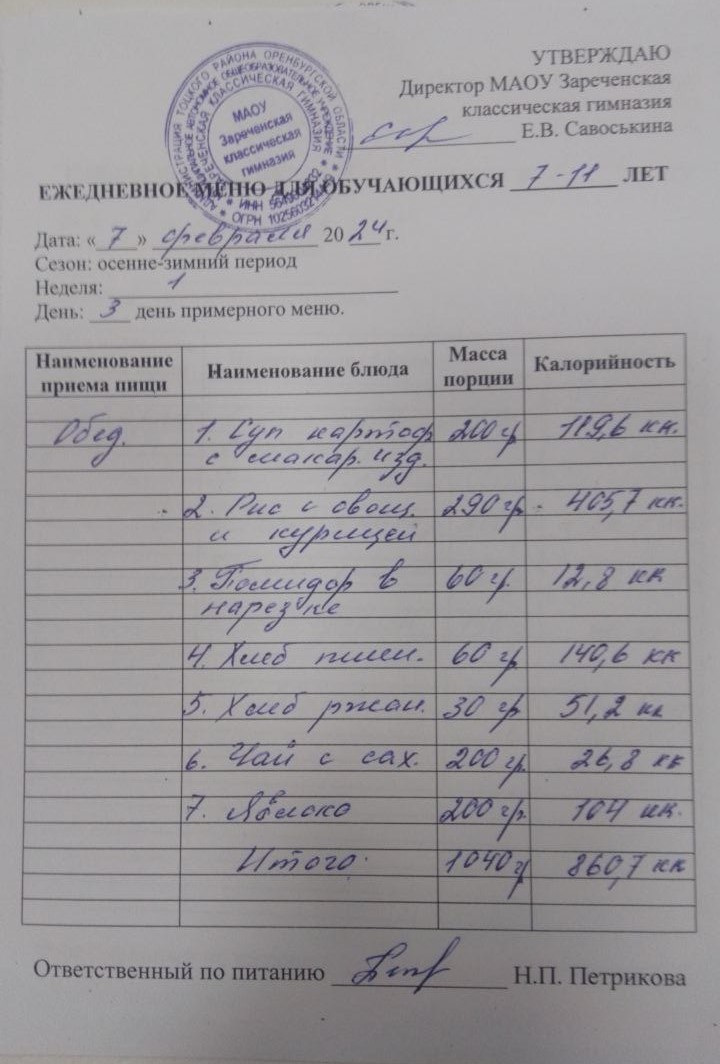 УТВЕРЖДАЮ
Директор МАОУ Зареченская
классическая гимназия
Е.В. Савоськина
АДМИНИСТРАЦИЯ ТОЦКОГО РАЙОНА ОРЕНБУРГСКОЙ ОБЛАСТИ
МУНИЦИПАЛЬНОЕ АВТОНОМНОЕ ОБЩЕОБРАЗОВАТЕЛЬНОЕ УЧРЕЖДЕНИЕ
ЗАРЕЧЕНСКАЯ КЛАССИЧЕСКАЯ ГИМНАЗИЯ
МАОУ
Зареченская
классическая
гимназия
ИНН
ОГРН
ЕЖЕДНЕВНОЕ МЕНЮ ДЛЯ ОБУЧАЮЩИХСЯ 7-11 ЛЕТ
Дата: «7» февраля 2024 г.
Сезон: осенне-зимний период
Неделя: 1
День: 3 день примерного меню.
Наименование приема пищи Наименование блюда Масса порции Калорийность
Обед. 1. Суп картоф 200 гр 119,6 кк.
с макар. изд.
2. Рис с овощ. 290 гр. 405,7 кк.
и курицей
3. Помидор в 60 гр. 12,8 кк
нарезке
4. Хлеб пшен. 60 гр 140,6 кк
5. Хлеб ржан. 30 гр 51,2 кк
6. Чай с сах. 200 гр. 26,8 кк
7. Яблоко 200 гр. 104 кк.
Итого. 1040 гр 860,7 кк
Ответственный по питанию Н.П. Петрикова